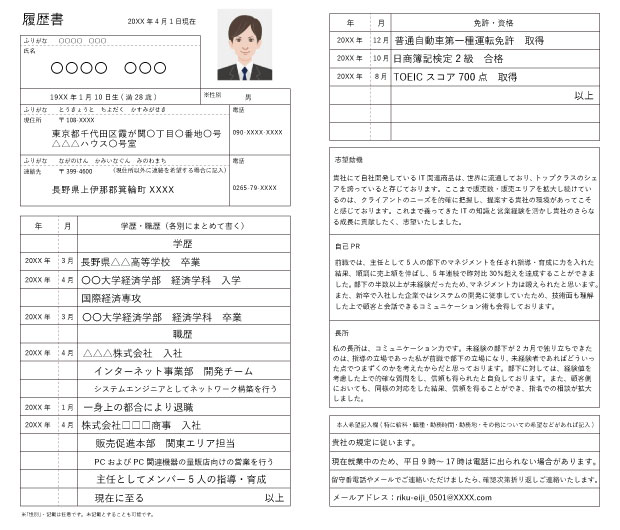 履歴書
20XX 年 4 月 1 日現在
ふりがな 〇〇〇〇 〇〇〇
氏名
〇〇〇〇 〇〇〇
19XX 年 1 月 10 日生 ( 満 28 歳 )
※性別 男
ふりがな とうきょうと ちよだく かすみがせき
電話
現住所 〒108-XXXX
東京都千代田区霞が関〇丁目〇番地〇号
△△△ハウス〇号室
090-XXXX-XXXX
ふりがな ながのけん かみいなぐん みのわまち
電話
連絡先 〒399-4600 (現住所以外に連絡を希望する場合に記入)
長野県上伊那郡箕輪町 XXXX
0265-79-XXXX
年 月 学歴・職歴（各別にまとめて書く）
学歴
20XX 年 3 月 長野県△△高等学校 卒業
20XX 年 4 月 〇〇大学経済学部 経済学科 入学
国際経済専攻
20XX 年 3 月 〇〇大学経済学部 経済学科 卒業
職歴
20XX 年 4 月 △△△株式会社 入社
インターネット事業部 開発チーム
システムエンジニアとしてネットワーク構築を行う
20XX 年 1 月 一身上の都合により退職
20XX 年 4 月 株式会社□□□商事 入社
販売促進本部 関東エリア担当
PC および PC 関連機器の量販店向けの営業を行う
主任としてメンバー 5 人の指導・育成
現在に至る 以上
※「性別」: 記載は任意です。未記載とすることも可能です。
年 月 免許・資格
20XX 年 12 月 普通自動車第一種運転免許 取得
20XX 年 10 月 日商簿記検定 2 級 合格
20XX 年 8 月 TOEIC スコア 700 点 取得
以上
志望動機
貴社にて自社開発している IT 関連商品は、世界に流通しており、トップクラスのシェ
アを誇っていると存じております。ここまで販売数・販売エリアを拡大し続けてい
るのは、クライアントのニーズを的確に把握し、提案する貴社の環境があってこそ
と感じております。これまで養ってきた IT の知識と営業経験を活かし貴社のさらな
る成長に貢献したく、志望いたしました。
自己 PR
前職では、主任として 5 人の部下のマネジメントを任され指導・育成に力を入れた
結果、順調に売上額を伸ばし、5 年連続で昨対比 30%超えを達成することができま
した。部下の半数以上が未経験だったため、マネジメント力は鍛えられたと思います。
また、新卒で入社した企業ではシステムの開発に従事していたため、技術面も理解
した上で顧客と会話できるコミュニケーション術も会得しております。
長所
私の長所は、コミュニケーション力です。未経験の部下が 2 カ月で独り立ちできた
のは、指導の立場であった私が前職で部下の立場になり、未経験者であればどういっ
た点でつまずくのかを考えたからだと思っております。部下に対しては、経験値を
考慮した上で的確な質問をし、信頼も得られたと自負しております。また、顧客側
においても、同様の対応をした結果、信頼を得ることができ、指名での相談が拡大
しました。
本人希望記入欄 ( 特に給料・職種・勤務時間・勤務地・その他についての希望などがあれば記入 )
貴社の規定に従います。
現在就業中のため、平日 9 時～ 17 時は電話に出られない場合があります。
留守番電話やメールでご連絡いただけましたら、確認次第折り返しご連絡いたします。
メールアドレス：riku-eiji_0501@XXXX.com